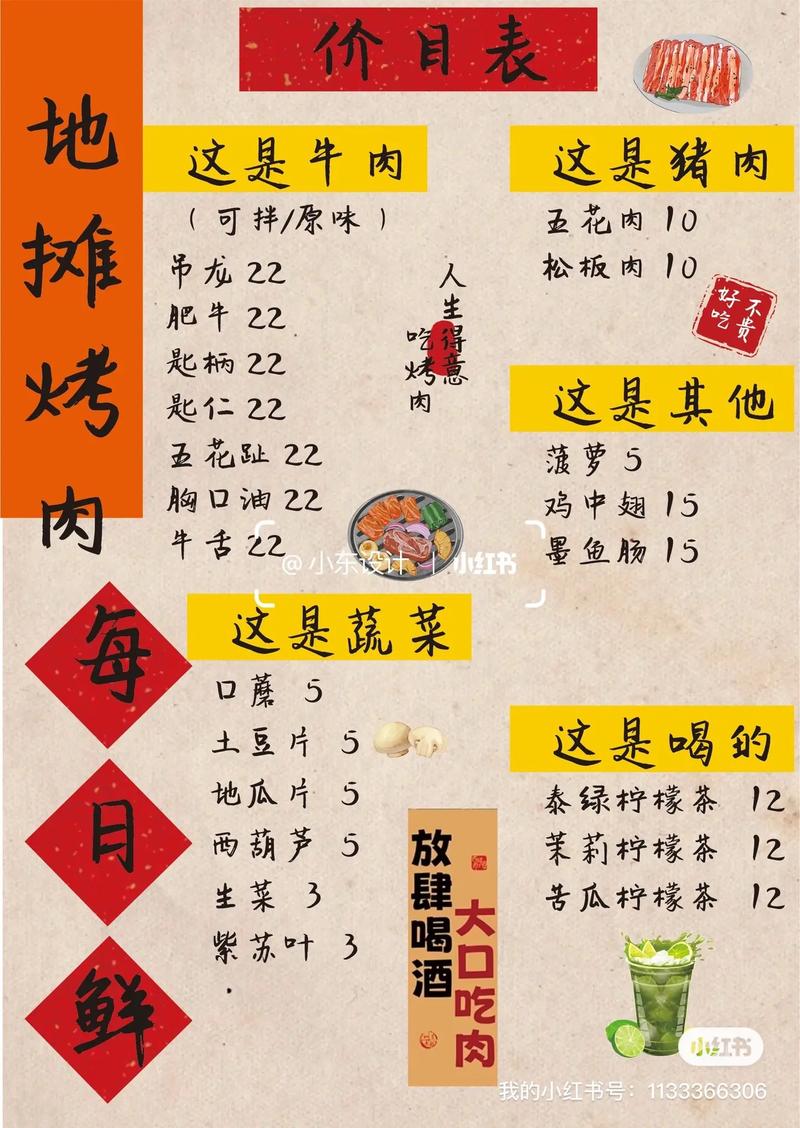 价目表
地摊烤肉
每日鲜
这是牛肉
（可拌/原味）
吊龙 22
肥牛 22
匙柄 22
匙仁 22
五花趾 22
胸口油 22
牛舌 22
人生得意
吃烤肉
@小东设计 | 小红书
这是蔬菜
口蘑 5
土豆片 5
地瓜片 5
西葫芦 5
生菜 3
紫苏叶 3
大口吃肉
放肆喝酒
这是猪肉
五花肉 10
松板肉 10
不贵
好吃
这是其他
菠萝 5
鸡中翅 15
墨鱼肠 15
这是喝的
泰绿柠檬茶 12
茉莉柠檬茶 12
苦瓜柠檬茶 12
小红书
我的小红书号：1133366306